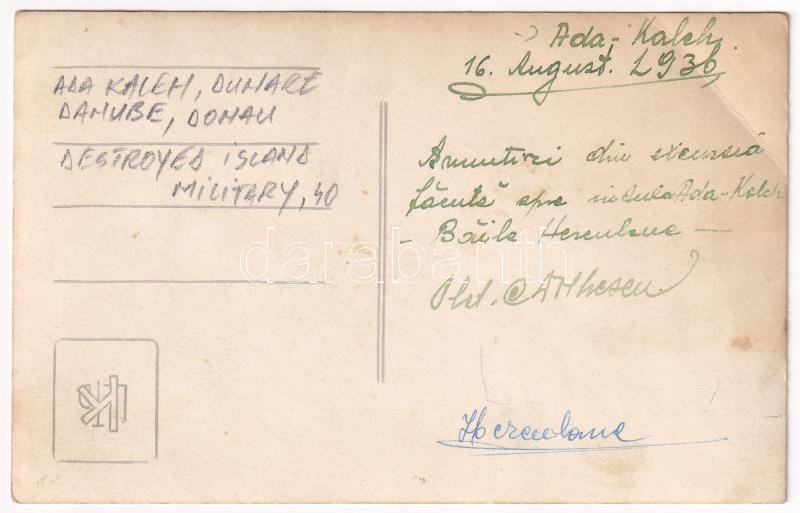 ADA KALEH, DUNARE
DANUBE, DONAU
DESTROYED ISLAND
MILITARY, 40
Ada-Kaleh
16. August. 1936
Amintiri din excursia
făcută spre insula Ada-Kaleh
- Băile Herculane -
Herculane
darabanth